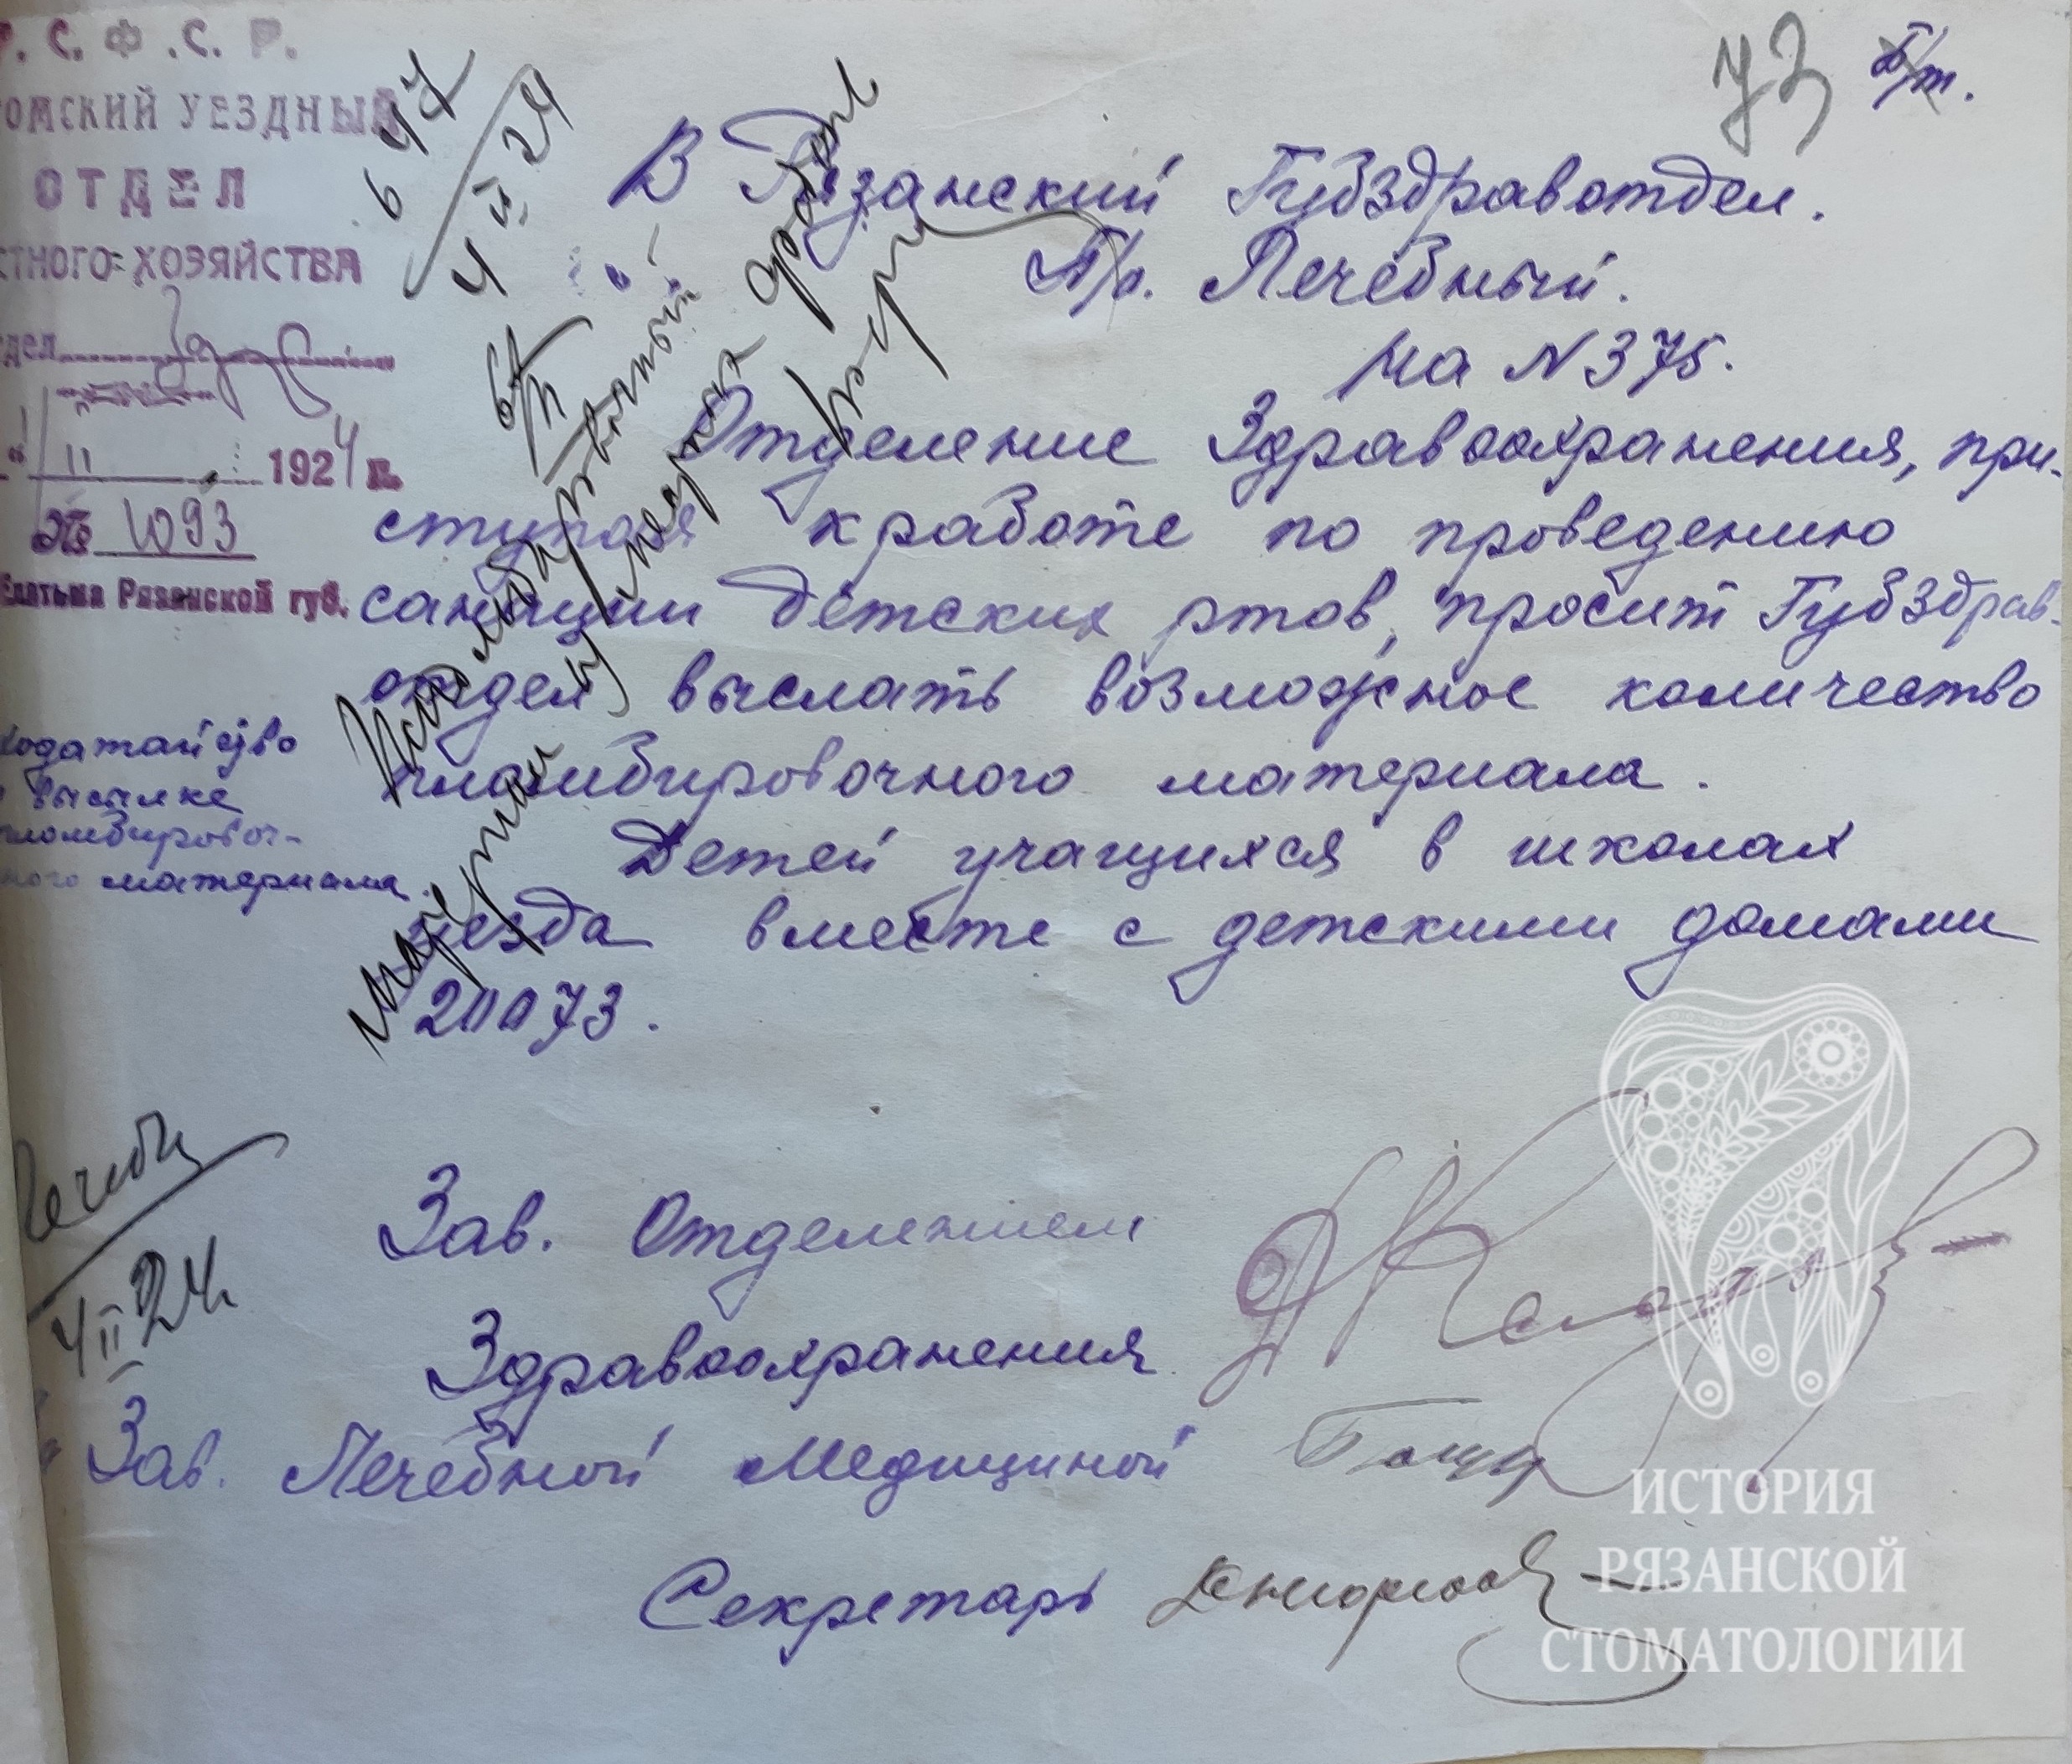 Р. С. Ф. С. Р.
ОМСКИЙ УЕЗДНЫЙ
ОТДЕЛ
СТНОГО ХОЗЯЙСТВА
дел
"1/II 1924 г.
№ 1093
Елатьма Рязанской губ.
73
В Рязанский Губздравотдел.
П/о. Лечебный.
На N 375.
Отделение Здравоохранения, при-
ступая к работе по проведению
санации детских ртов, просит Губздрав-
отдел выслать возможное количество
пломбировочного материала.
Детей учащихся в школах
уезда вместе с детскими домами
20073.
ходатайство
высылке
пломбировоч-
ного материала.
4 II 24
4 II 24
Зав. Отделением
Здравоохранения
Зав. Лечебной Медициной
Секретарь
ИСТОРИЯ
РЯЗАНСКОЙ
СТОМАТОЛОГИИ